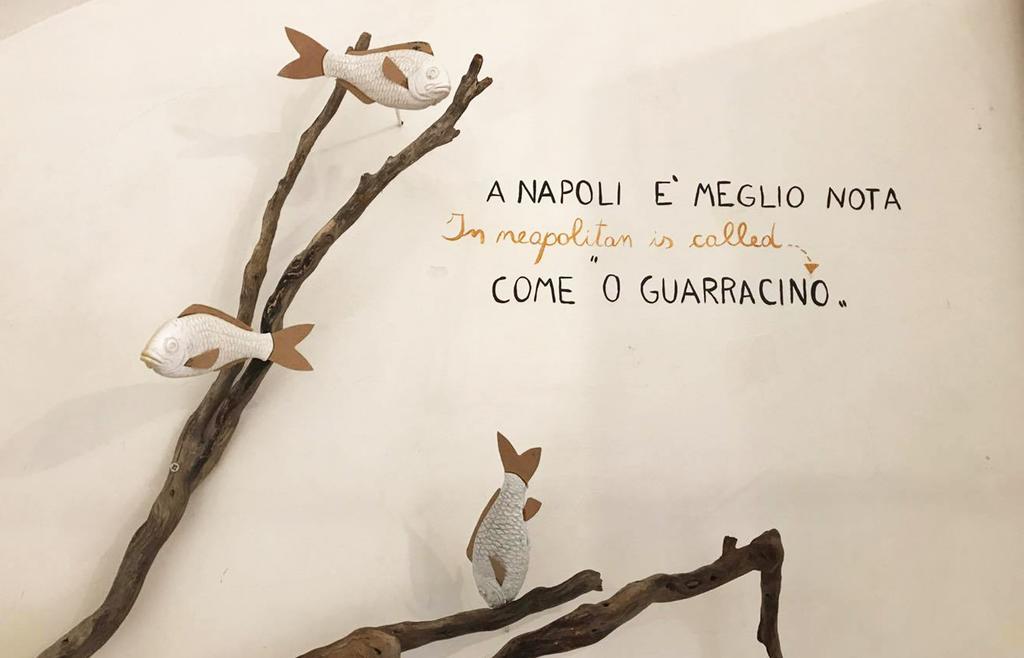 A NAPOLI E' MEGLIO NOTA
In neapolitan is called...
COME "O GUARRACINO„